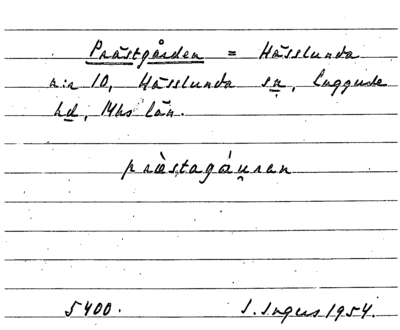 Prästgården = Hässlunda
n:r 10, Hässlunda sn, Luggude
hd, Mhs län.
prästagáu̯ran
5400. I. Ingers 1954.